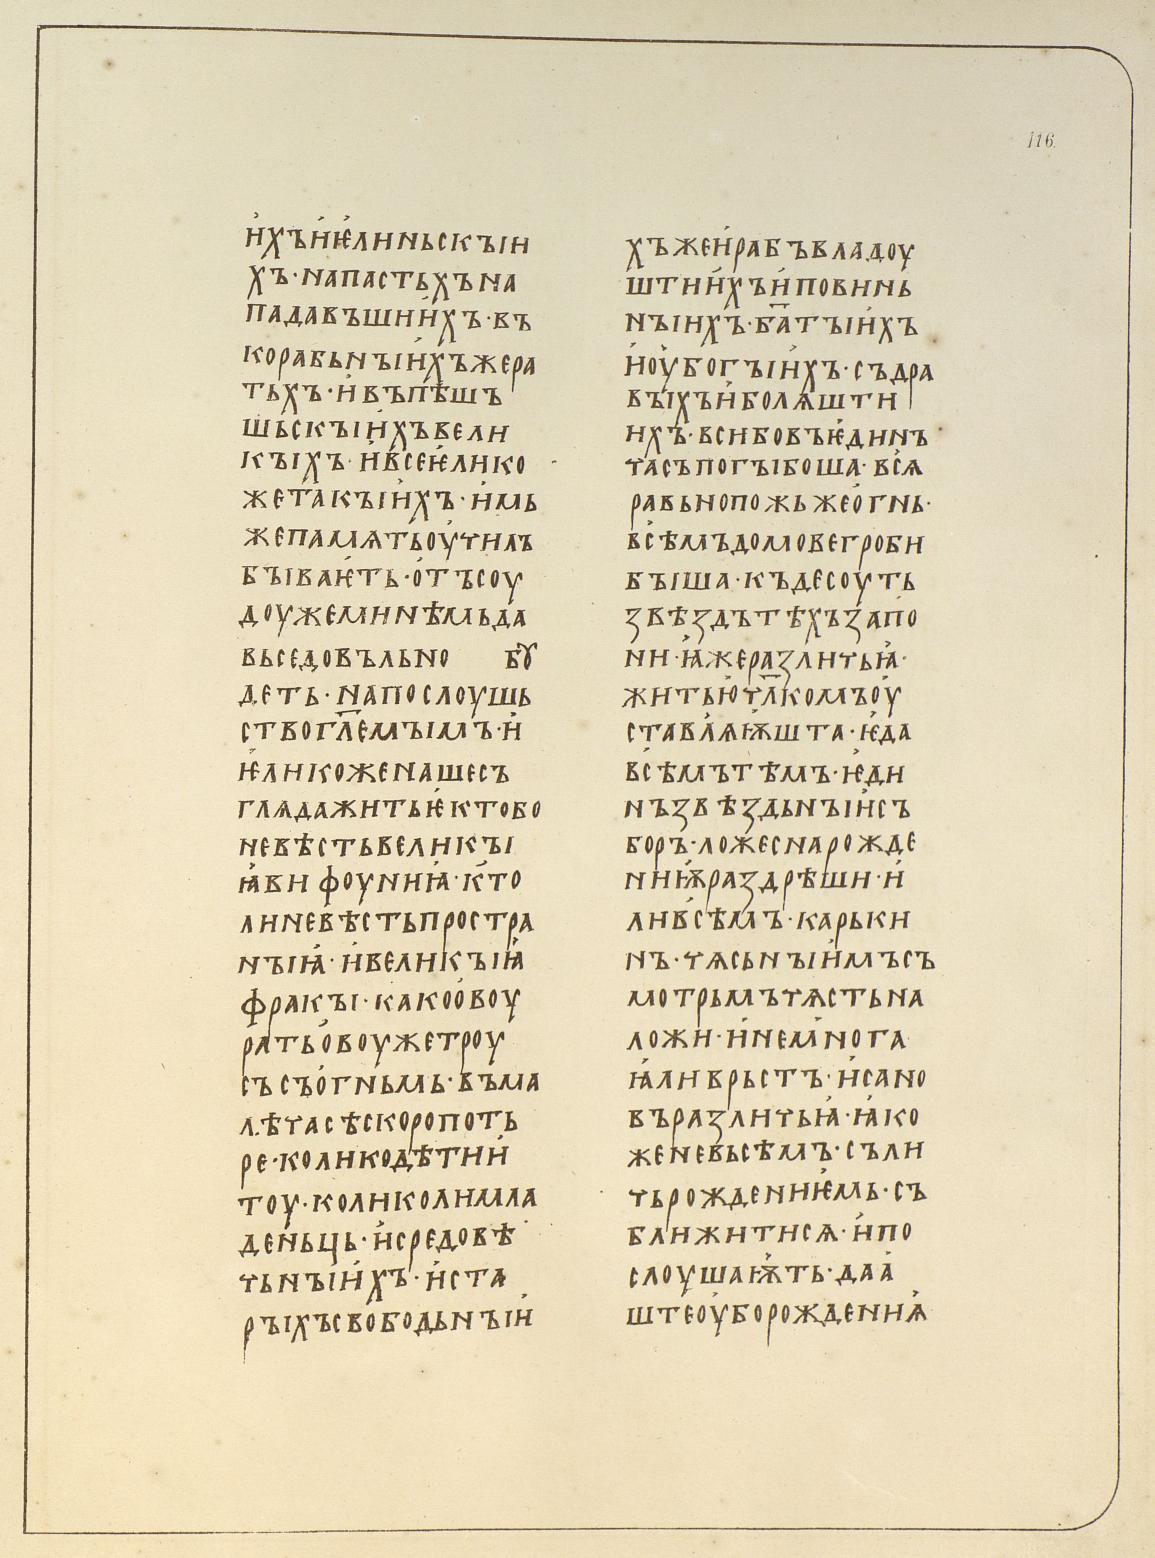 116.
и҆хъи҆ѥ҆линьскъіи
хъ·напастьхъна
падавъшии҆хъ·въ
корабьнъіи҆хъжера
тьхъ·и҆въпѣшъ
шьскъіи҆хъвели
къіхъ·и҆в҆сеѥ҆лико
жетакъіи҆хъ·и҆мь
жепамѧтьоу҆чилъ
бъіваѥ҆ть·о҆тъсоу
доужеминѣмьда
вьседовъльно боу
деть·напослоушь
ствогл҃емъімъ·и҆
ѥ҆ликоженашесъ
глѧдажитьѥ҆ктобо
невѣстьвеликъі
ꙗ҆вифоуниꙗ҆·к҆то
линевѣстьпростра
нъіꙗ҆·и҆великъіꙗ҆
фракъі·какоо҆воу
ратьо҆воужетроу
съсъо҆гньмь·въма
лѣчасѣскоропоть
ре·коликодѣтии҆
тоу·коликолимла
деньць·и҆средовѣ
чьнъіи҆хъ·и҆ста
ръіхъсвободьнъіи҆
хъжеи҆рабъвладоу
штии҆хъи҆повинь
нъіихъ·ба҃тъіи҆хъ
и҆оу҆богъіи҆хъ·съдра
въіхъи҆болѧшти
ихъ·всибовъѥ҆динъ
часъпогъібоша·в҆сѧ
равьнопожьжео҆гнь·
в҆сѣмъдомовегроби
бъіша·къдесоуть
ꙁвѣꙁдътѣхъꙁапо
ни·ꙗ҆жераꙁличьꙗ҆·
житью҆чл҃комъоу҆
ставлѧѭ҆шта·ѥ҆да
в҆сѣмътѣмъ·ѥ҆ди
нъꙁвѣꙁдьнъіи҆съ
боръ·ложеснарожде
ниѭ҆раꙁдрѣши·и҆
лив҆сѣмъ·карьки
нъ·чѧсьнъіи҆мъсъ
мотрьмъчѧстьна
ложи·и҆нем҆нога
ꙗ҆ливрьстъ·и҆сано
въраꙁличьꙗ҆·ꙗ҆ко
женевьсѣмъ·съли
чьрождениѥ҆мь·съ
ближитисѧ·и҆по
слоушаѭ҆ть·даа҆
штеоу҆борождениѧ҆